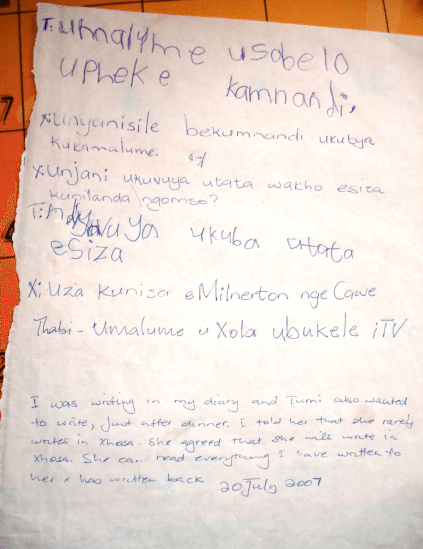 T: umalume usobelo
upheke kamnandi,
X: Unyanisile bekumnandi ukutya
kukamalume.
X: Unjani ukuvuya utata wakho esiza
kunilanda ngomso?
T: Ndivuya ukuba utata
esiza
X: Uza kunisa eMilnerton ngeCawe
Thabi - Umalume uXola ubukele iTV
I was writing in my diary and Tumi also wanted
to write, just after dinner. I told her that she rarely
writes in Xhosa. She agreed that she will write in
Xhosa. She can read everything I have written to
her & has written back 20 July 2007
7